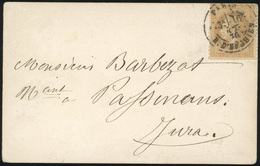 Monsieur Barbezat
Mant
à Passenans.
Jura.